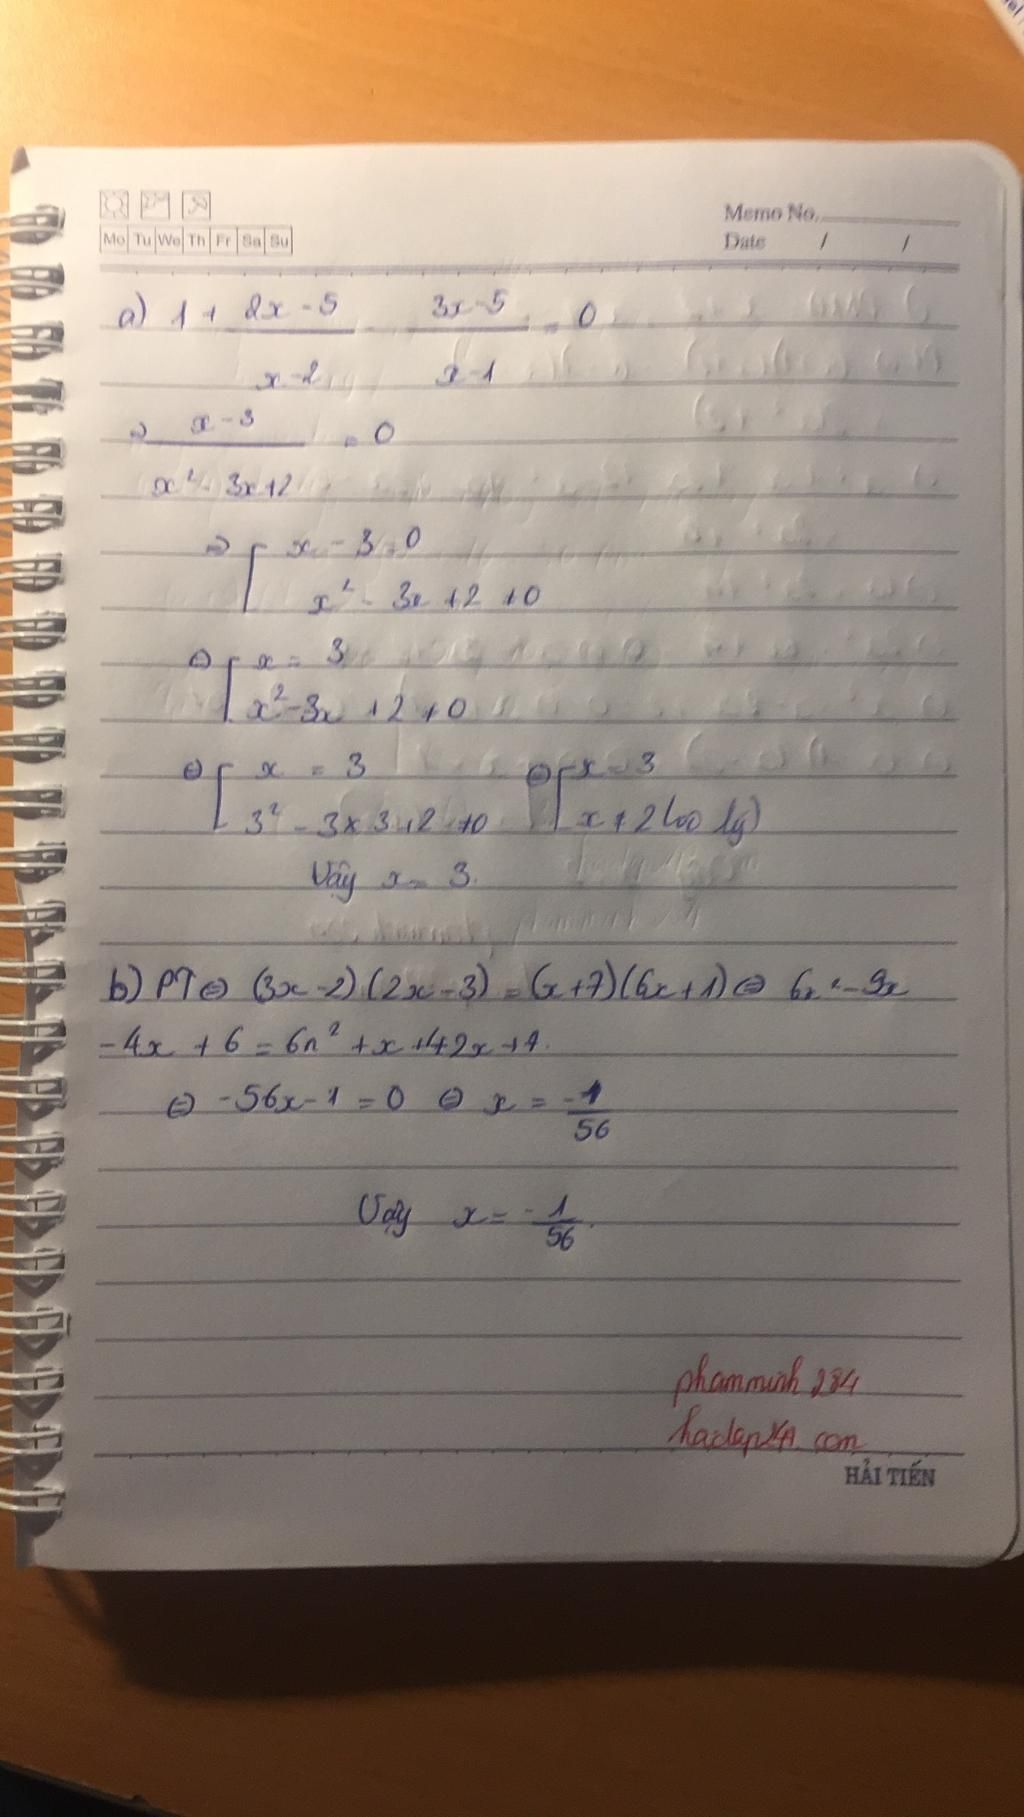 Memo No.
Mo Tu We Th Fr Sa Su
Date / /
a) 1 + 2x - 5 / x - 2 - 3x - 5 / x - 1 = 0
=> x - 3 / x² - 3x + 2 = 0
=> [ x - 3 = 0
x² - 3x + 2 ≠ 0
⇔ [ x = 3
x² - 3x + 2 ≠ 0
⇔ [ x = 3 ⇔ [ x = 3
3² - 3 x 3 + 2 ≠ 0 x ≠ 2
Vậy x = 3.
b) PT ⇔ (3x - 2)(2x - 3) = (x + 7)(6x + 1) ⇔ 6x² - 9x
- 4x + 6 = 6x² + x + 42x + 7.
⇔ -56x - 1 = 0 ⇔ x = -1/56
Vậy x = -1/56.
phamminh 284
.com
HẢI TIẾN